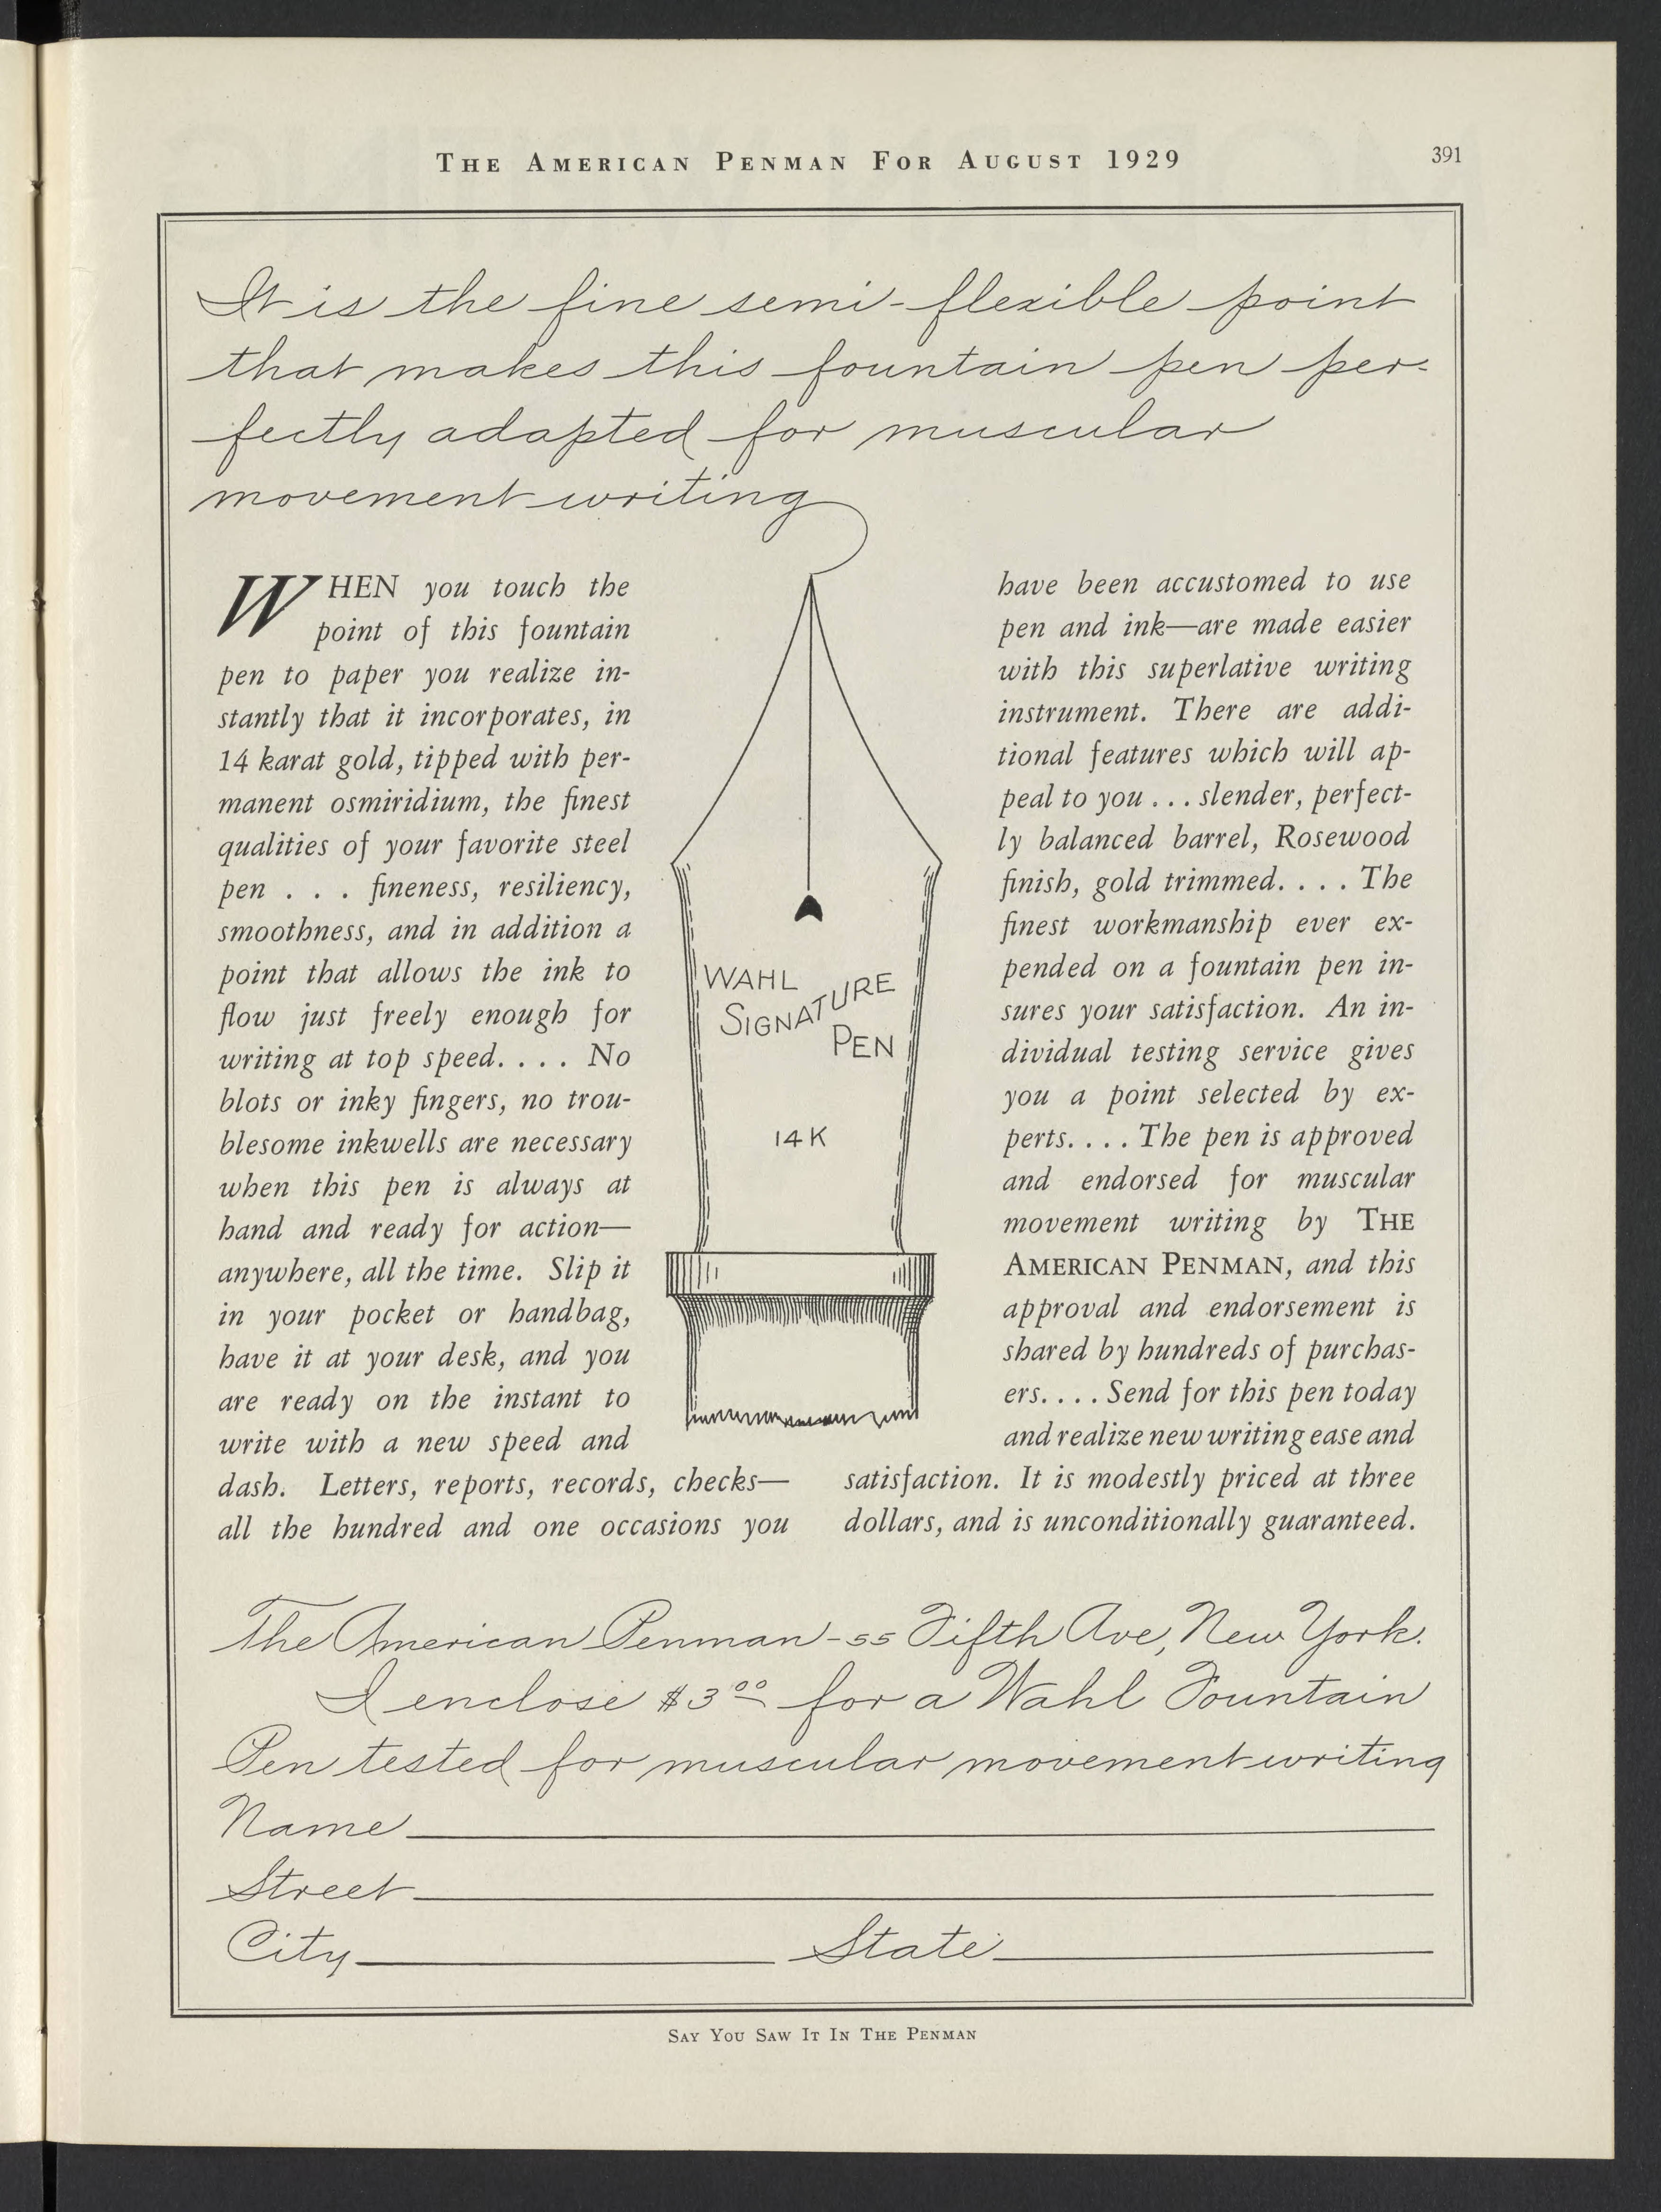 THE AMERICAN PENMAN FOR AUGUST 1929
391
It is the fine semi-flexible point
that makes this fountain pen per-
fectly adapted for muscular
movement writing
WHEN you touch the
point of this fountain
pen to paper you realize in-
stantly that it incorporates, in
14 karat gold, tipped with per-
manent osmiridium, the finest
qualities of your favorite steel
pen . . . fineness, resiliency,
smoothness, and in addition a
point that allows the ink to
flow just freely enough for
writing at top speed. . . . No
blots or inky fingers, no trou-
blesome inkwells are necessary
when this pen is always at
hand and ready for action—
anywhere, all the time. Slip it
in your pocket or handbag,
have it at your desk, and you
are ready on the instant to
write with a new speed and
dash. Letters, reports, records, checks—
all the hundred and one occasions you
WAHL
SIGNATURE
PEN
14K
have been accustomed to use
pen and ink—are made easier
with this superlative writing
instrument. There are addi-
tional features which will ap-
peal to you . . . slender, perfect-
ly balanced barrel, Rosewood
finish, gold trimmed. . . . The
finest workmanship ever ex-
pended on a fountain pen in-
sures your satisfaction. An in-
dividual testing service gives
you a point selected by ex-
perts. . . . The pen is approved
and endorsed for muscular
movement writing by THE
AMERICAN PENMAN, and this
approval and endorsement is
shared by hundreds of purchas-
ers. . . . Send for this pen today
and realize new writing ease and
satisfaction. It is modestly priced at three
dollars, and is unconditionally guaranteed.
The American Penman - 55 Fifth Ave, New York.
I enclose $3.00 for a Wahl Fountain
Pen tested for muscular movement writing
Name
Street
City State
SAY YOU SAW IT IN THE PENMAN